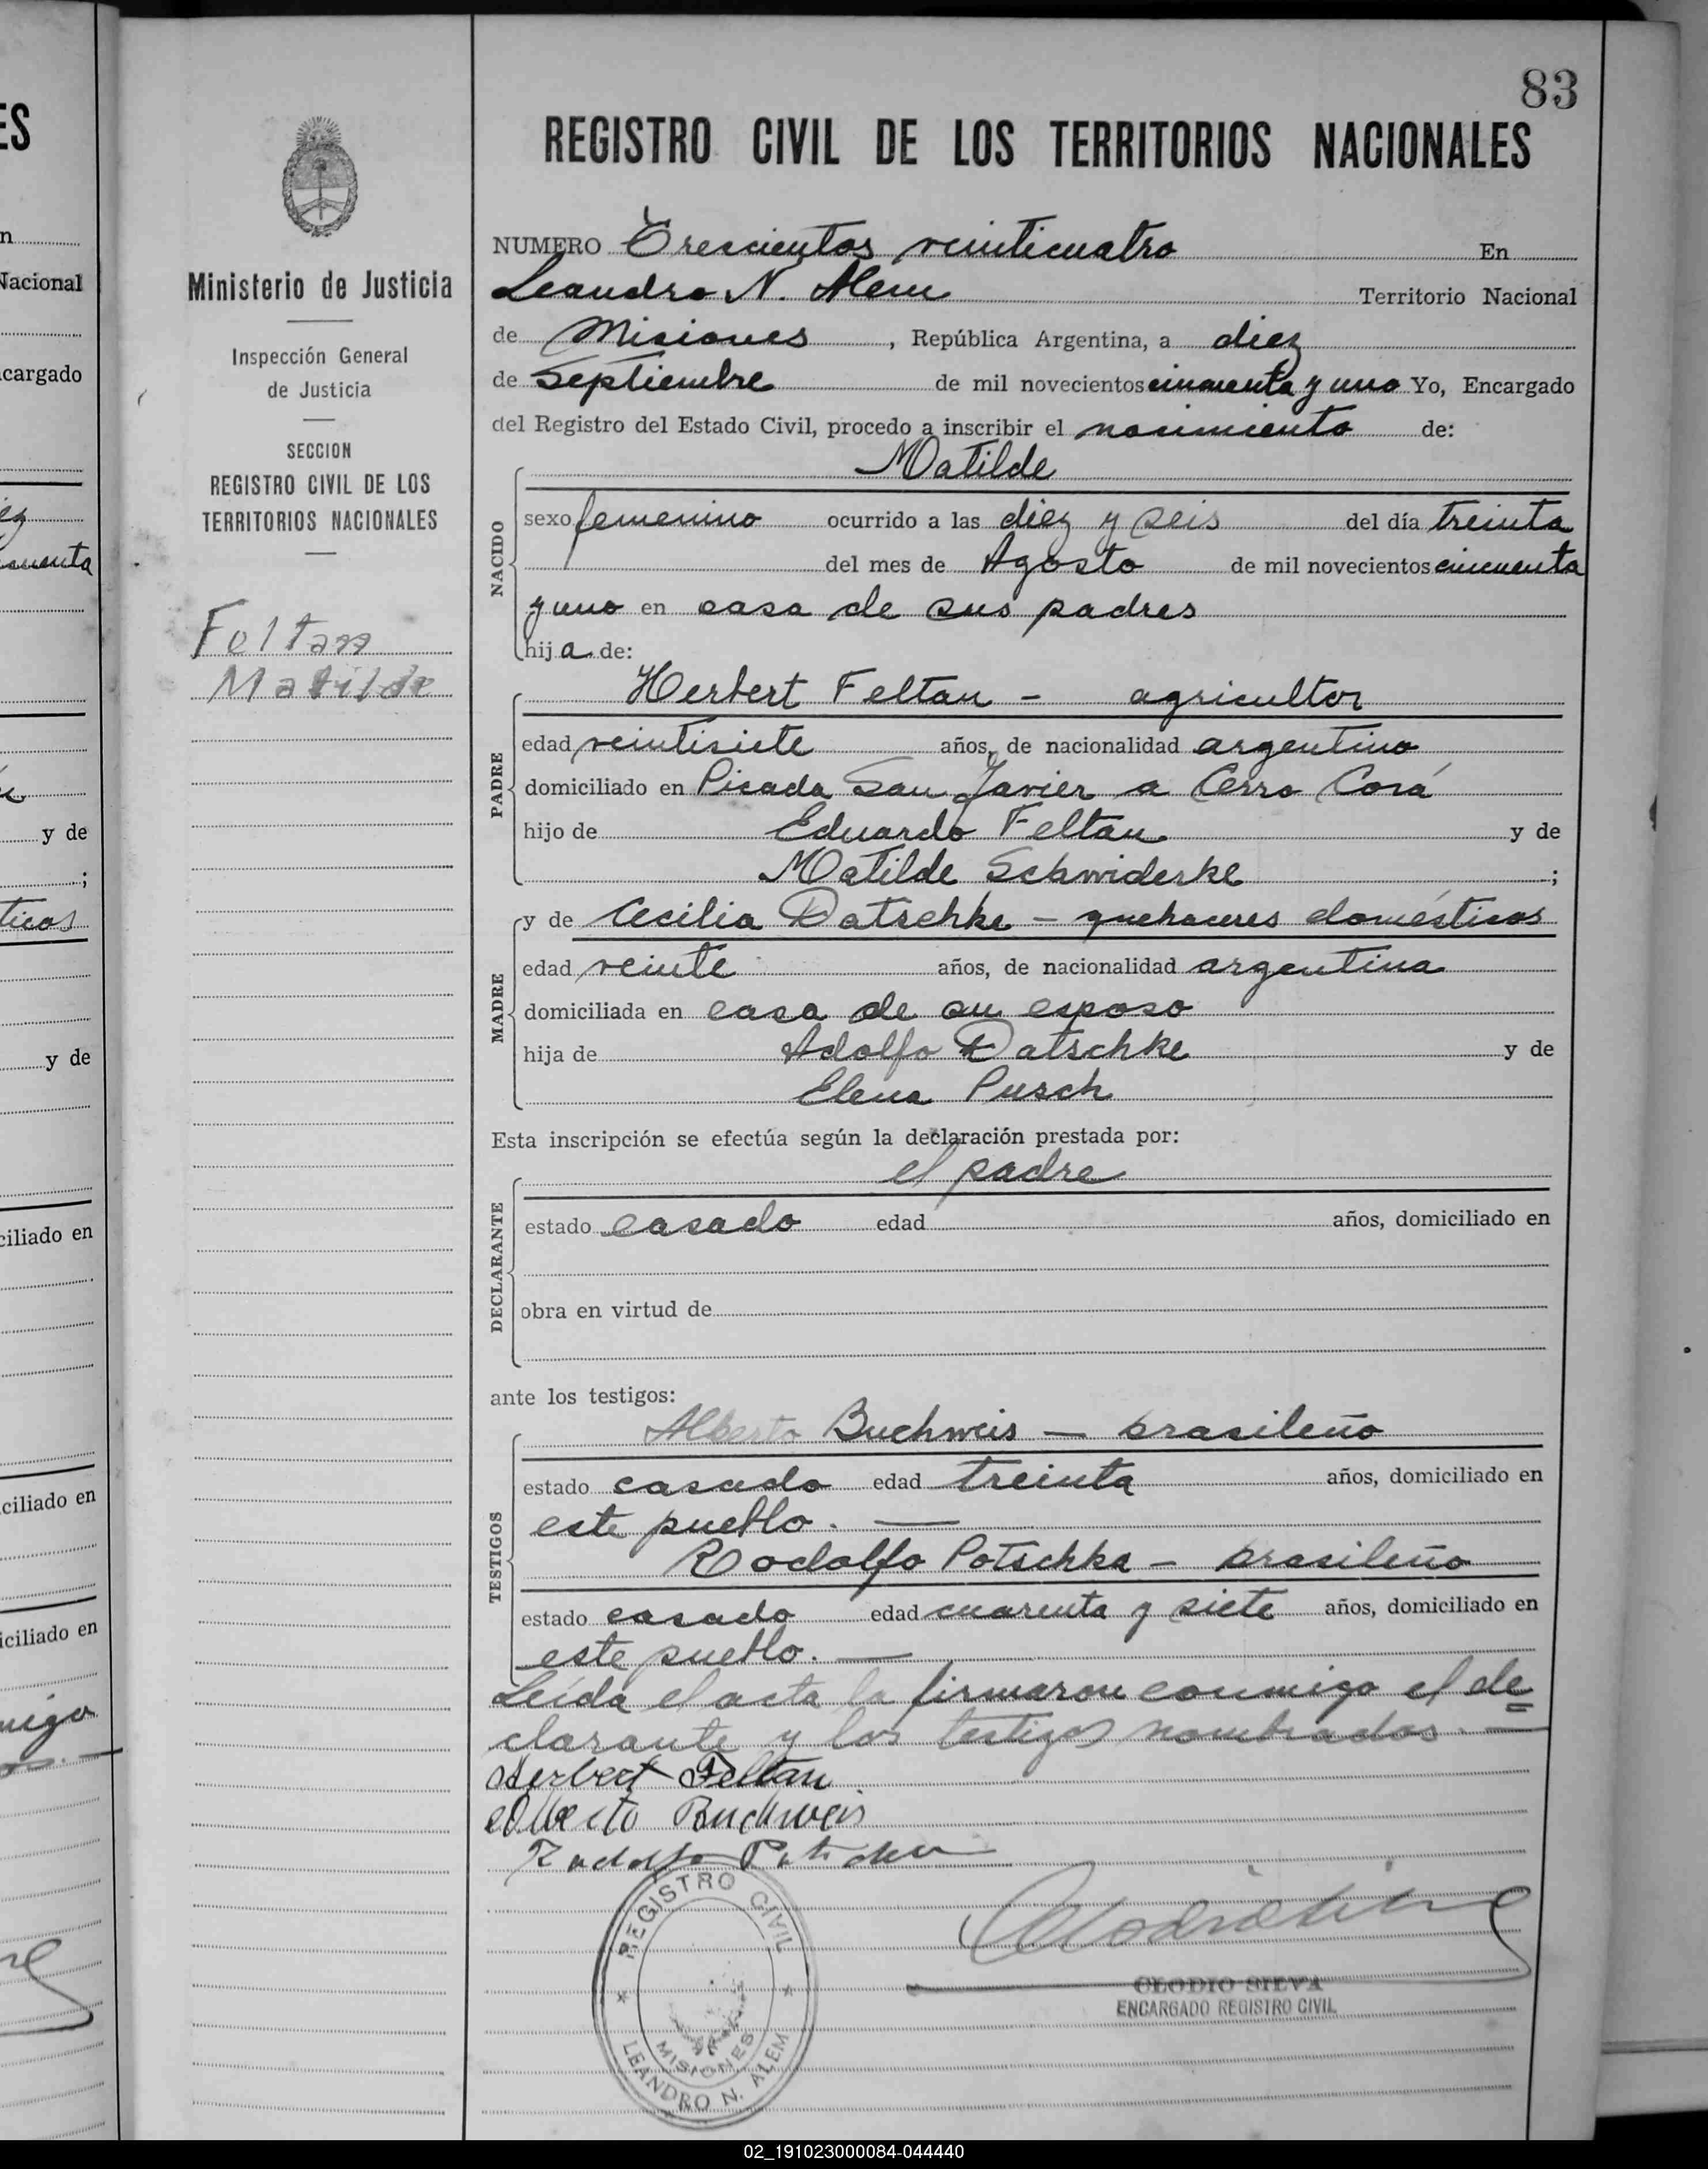 83
REGISTRO CIVIL DE LOS TERRITORIOS NACIONALES
Ministerio de Justicia
Inspección General
de Justicia
SECCION
REGISTRO CIVIL DE LOS
TERRITORIOS NACIONALES
Feltan
Matilde
NUMERO Trescientos veinticuatro En
Leandro N. Alem Territorio Nacional
de Misiones, República Argentina, a diez
de Septiembre de mil novecientos cincuenta y uno Yo, Encargado
del Registro del Estado Civil, procedo a inscribir el nacimiento de:
Matilde
NACIDO
sexo femenino ocurrido a las diez y seis del día treinta
del mes de Agosto de mil novecientos cincuenta
y uno en casa de sus padres
hija de:
Herbert Feltan - agricultor
PADRE
edad veintisiete años, de nacionalidad argentino
domiciliado en Picada San Javier a Cerro Corá
hijo de Eduardo Feltan y de
Matilde Schwiderke ;
y de Cecilia Datschke - quehaceres domésticos
MADRE
edad veinte años, de nacionalidad argentina
domiciliada en casa de su esposo
hija de Adolfo Datschke y de
Elena Pusch
Esta inscripción se efectúa según la declaración prestada por:
el padre
DECLARANTE
estado casado edad años, domiciliado en
obra en virtud de
ante los testigos:
Alberto Buchweis — brasileño
TESTIGOS
estado casado edad treinta años, domiciliado en
este pueblo. —
Rodolfo Potschka - brasileño
estado casado edad cuarenta y siete años, domiciliado en
este pueblo. —
Leída el acta la firmaron conmigo el de=
clarante y los testigos nombrados. —
Herbert Feltan
Alberto Buchweis
Rodolfo
REGISTRO CIVIL
MISIONES
LEANDRO N. ALEM
CLODIO SILVA
ENCARGADO REGISTRO CIVIL
02_191023000084-044440